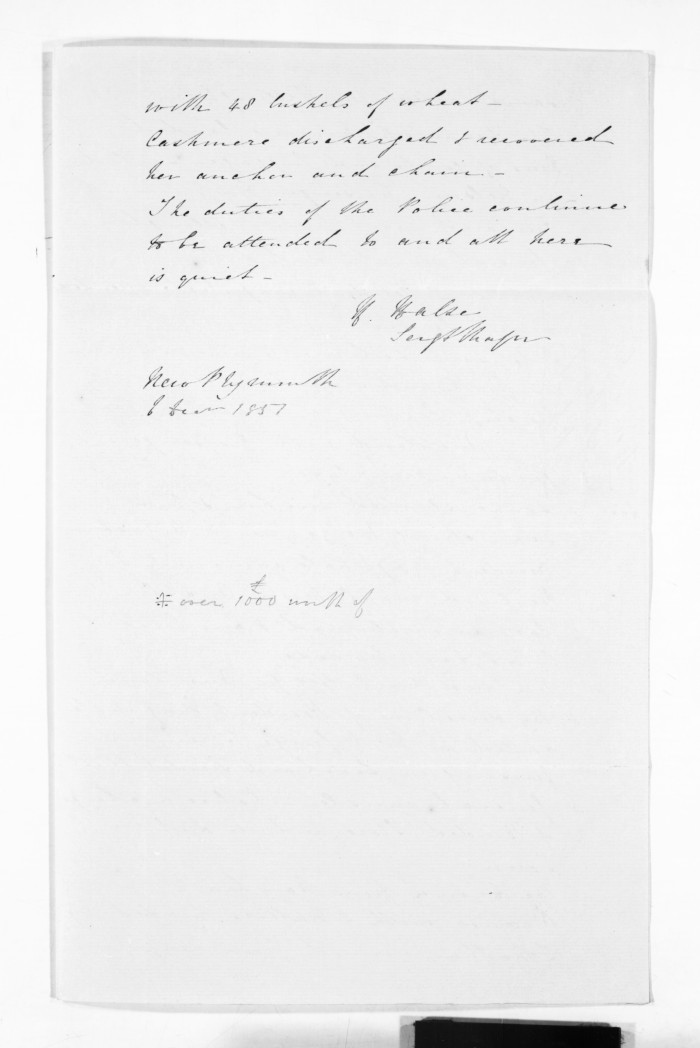 with 48 bushels of wheat -
Cashmere discharged & recovered
her anchor and chain -
The duties of the Police continue
to be attended to and all here
is quiet -
H. Halse
Sergt Major
New Plymouth
6 Jany 1857
※ over £1000 worth of